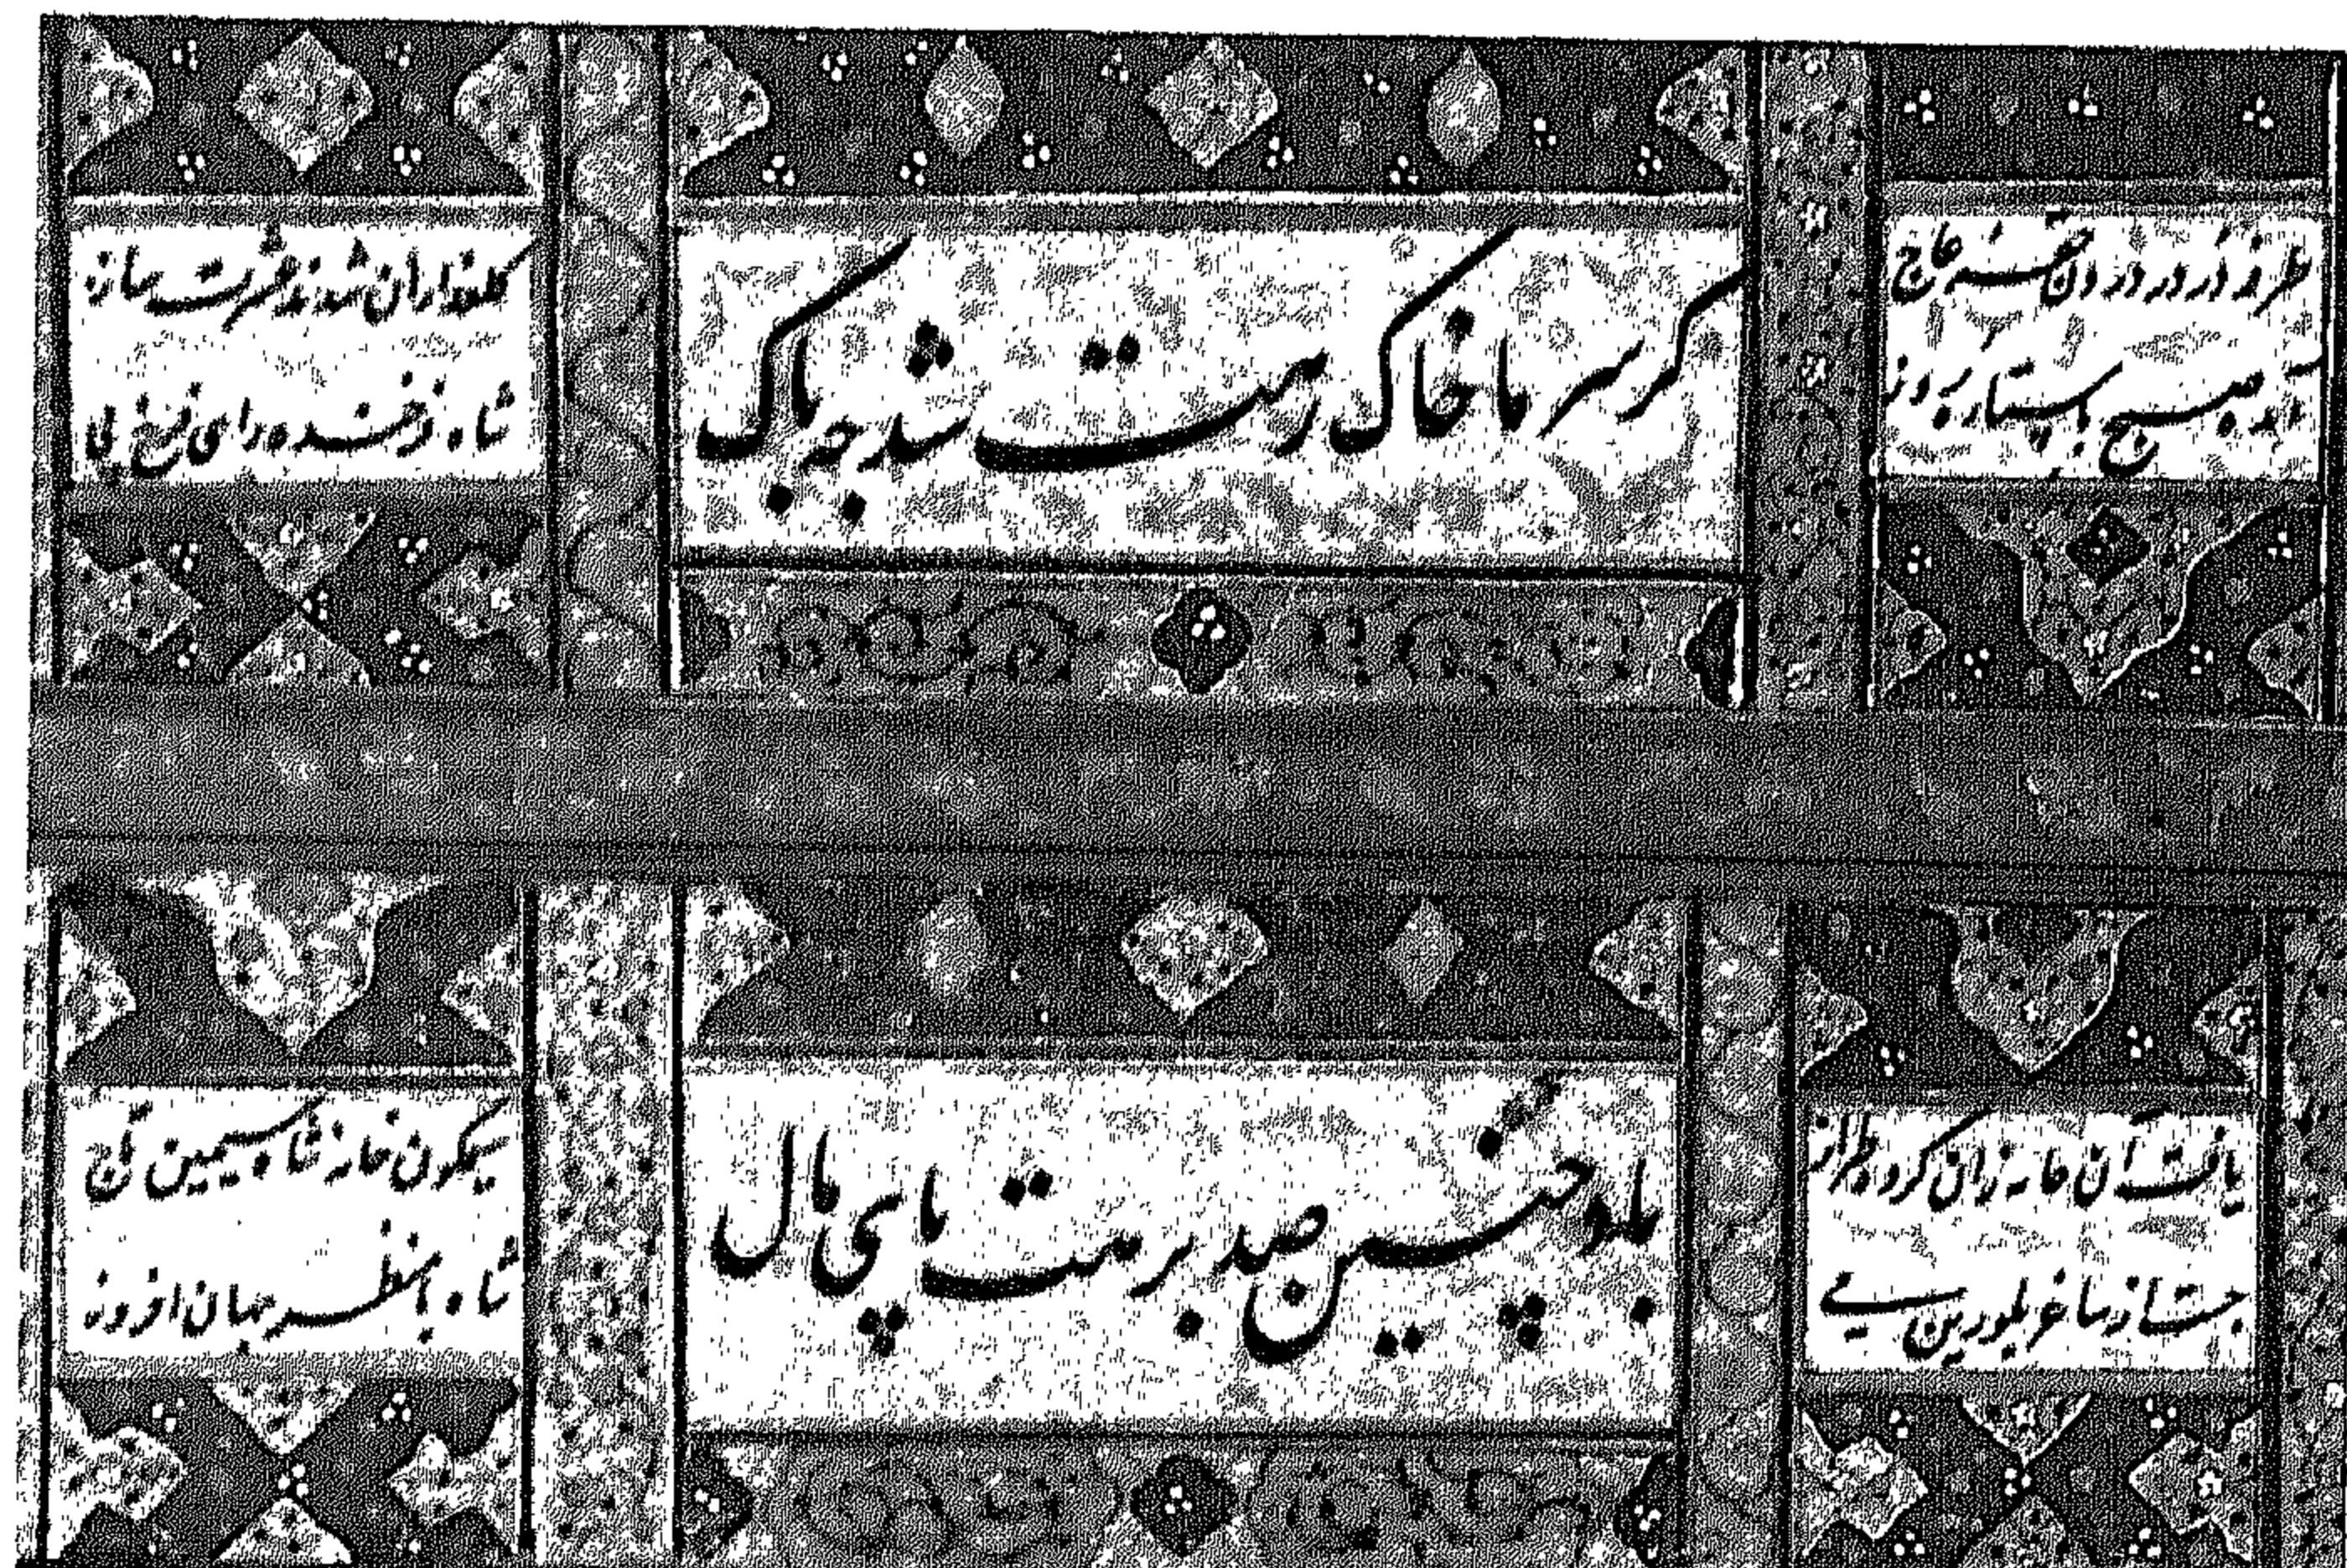 در درون
آمد صبح با ستاره روز
گر سر ما خاک رهت شد چه باک
گلعذاران شدند عشرت ساز
شاه فرخنده رای فرخ پی
یافت آن خانه زان گروه طراز
جست از ساغر بلورین می
با دو چنین صد برهت پای مال
سیمگون خانه شاه سیمین تاج
شاه با منظر جهان افروز